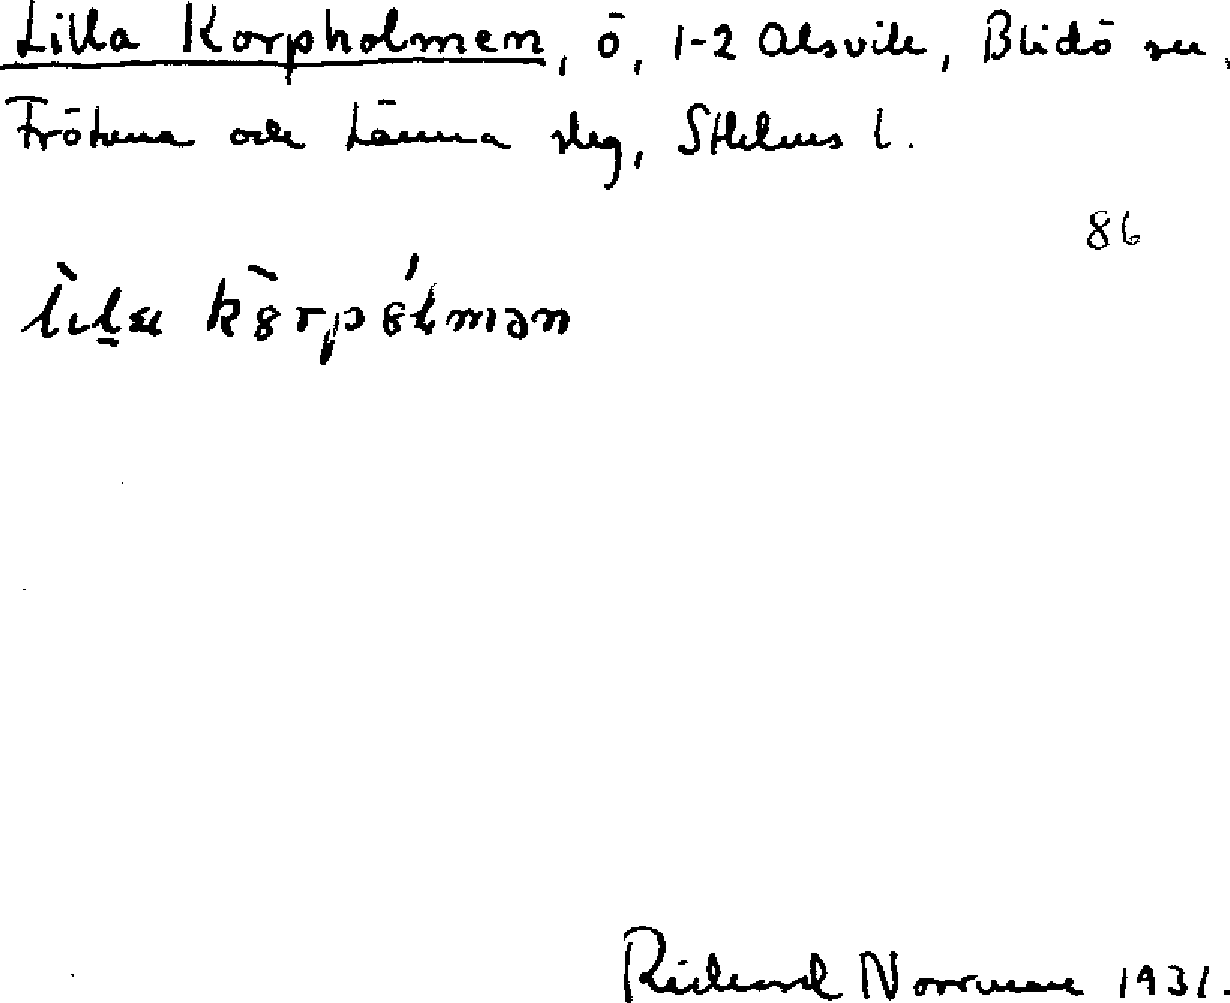 Lilla Korpholmen, ö, 1-2 Alsvik, Blidö sn,
Frötuna och Länna slg, Sthlms l.
86
Richard Norrman 1931.